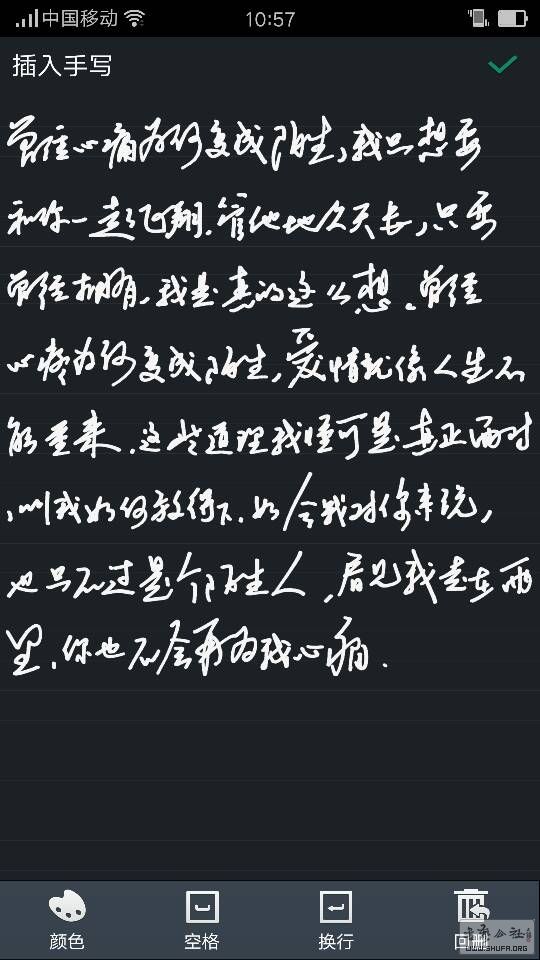 中国移动 10:57
插入手写
曾经心痛为何变成陌生,我只想要
和你一起飞翔.管他地久天长,只要
曾经拥有,我是真的这么想。曾经
心疼为何变成陌生,爱情就像人生不
能重来.这些道理我懂可是真正面对
,叫我如何放得下.如今我对你来说,
也只不过是个陌生人,看见我走在雨
里.你也不会再为我心痛.
颜色 空格 换行 回删
书法公社
WWW.SHUFA.ORG